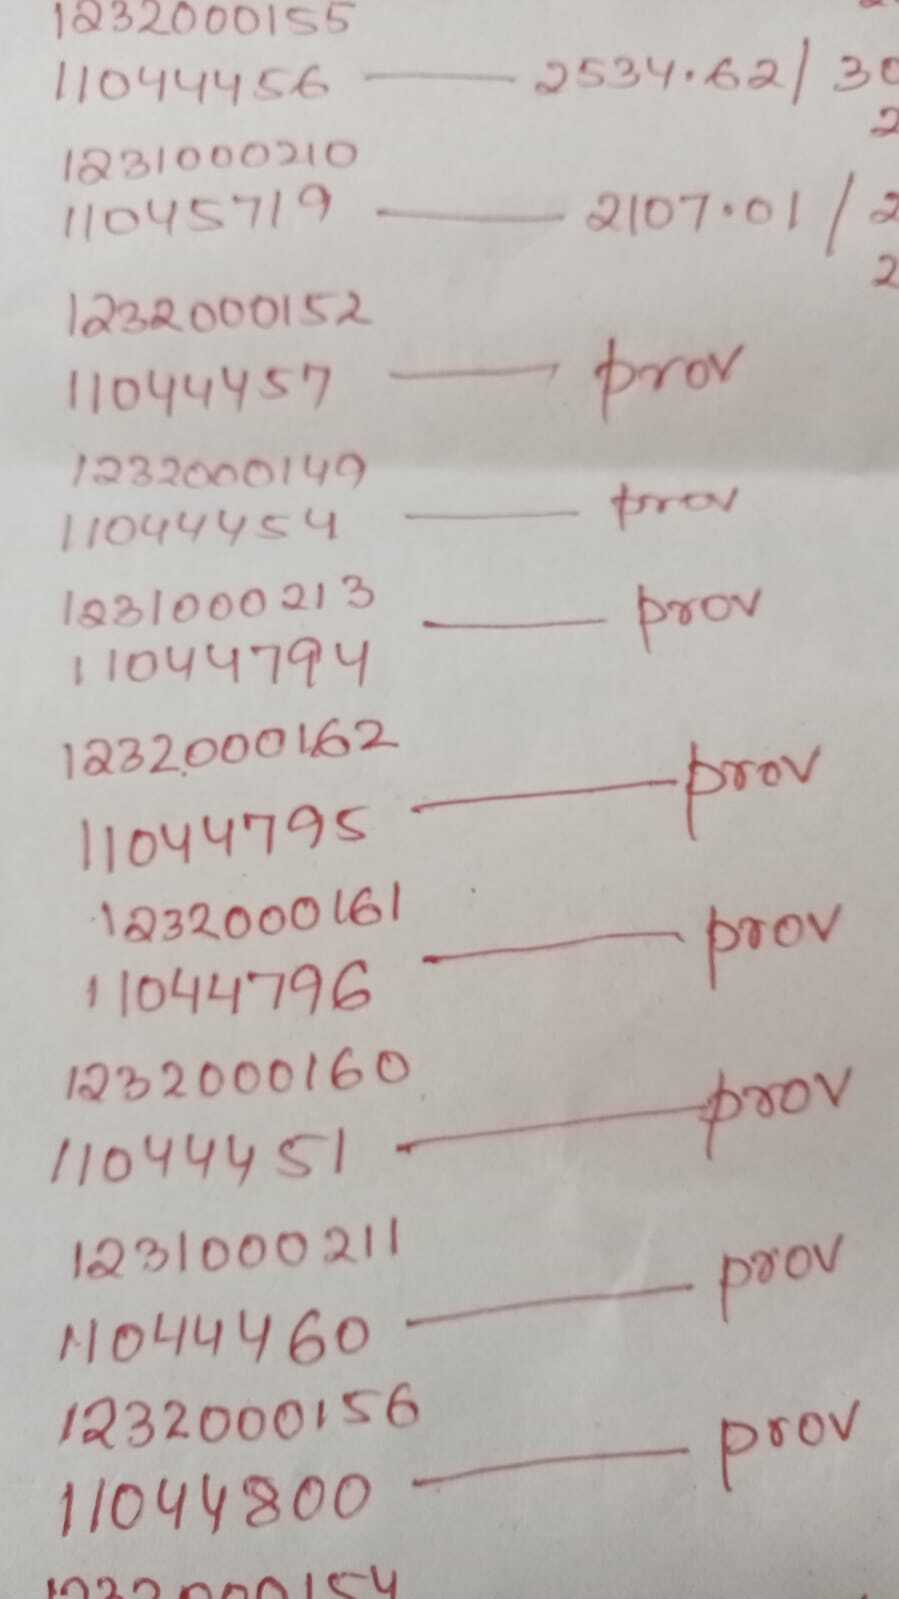 1232000155
11044456 — 2534.62/ 30
2
1231000210
11045719 — 2107.01 / 2
2
1232000152
11044457 — prov
1232000149
11044454 — prov
1231000213 — prov
11044794
1232000162
11044795 — prov
1232000161
11044796 — prov
1232000160
11044451 — prov
1231000211
11044460 — prov
1232000156
11044800 — prov
1232000154